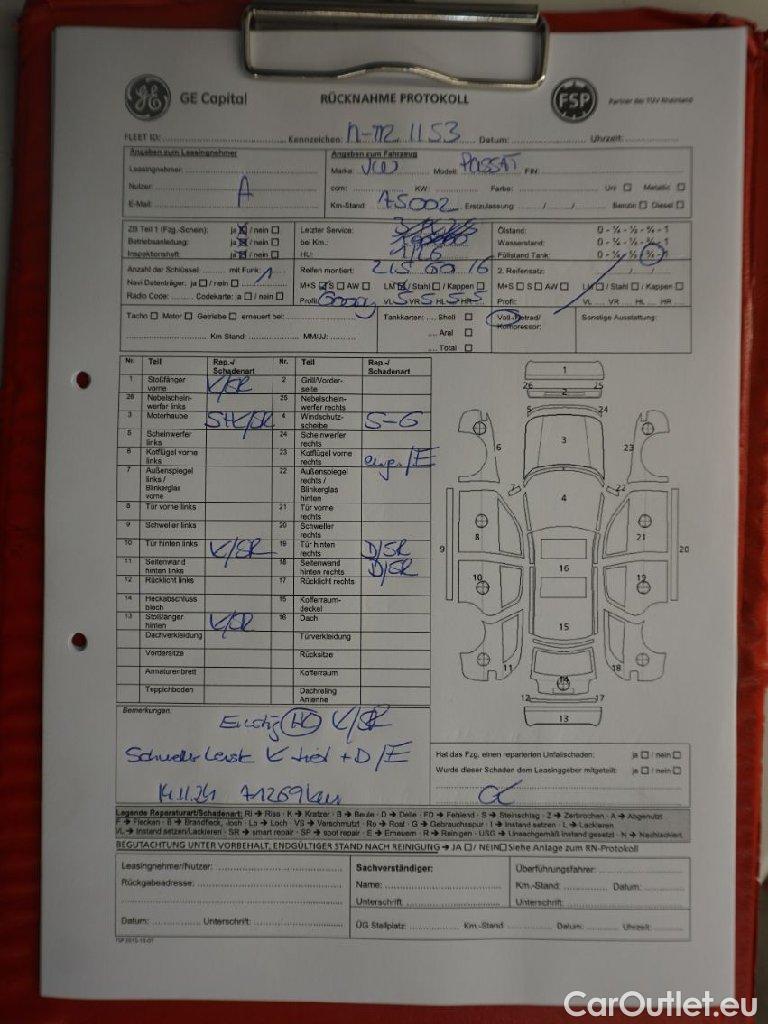 GE Capital RÜCKNAHME PROTOKOLL FSP Partner der TÜV Rheinland
FLEET ID: Kennzeichen: Datum: Uhrzeit:
Angaben zum Leasingnehmer Angaben zum Fahrzeug
Leasingnehmer: Marke: VW Modell: PASSAT FIN:
Nutzer: A com: KW: Farbe: Uni ☐ Metallic ☐
E-Mail: Km-Stand: 75002 Erstzulassung: / / Benzin ☐ Diesel ☐
ZB Teil 1 (Fzg.-Schein): ja ☒ / nein ☐ Letzter Service: Ölstand: 0 - ¼ - ½ - ¾ - 1
Betriebsanleitung: ja ☒ / nein ☐ bei Km.: Wasserstand: 0 - ¼ - ½ - ¾ - 1
Inspektionsheft ja ☒ / nein ☐ HU: Füllstand Tank: 0 - ¼ - ½ - ¾ - 1
Anzahl der Schlüssel mit Funk: 1 Reifen montiert: 215 60 16 2. Reifensatz:
Navi Datenträger: ja ☐ / nein ☐ M+S ☐ S ☐ AW ☐ LM ☐ / Stahl ☐ / Kappen ☐ M+S ☐ S ☐ AW ☐ LM ☐ / Stahl ☐ / Kappen ☐
Radio Code: Codekarte: ja ☐ / nein ☐ Profil: 5 5 5 5 Profil: VL VR HL HR
Tacho ☐ Motor ☐ Getriebe ☐ erneuert bei: Tankkarten: Shell ☐ Voll-/Notrad/ Sonstige Ausstattung:
Aral ☐ Kompressor:
Km Stand: MM/JJ: Total ☐
Nr. Teil Rep.-/ Schadenart Nr. Teil Rep.-/ Schadenart
1 Stoßfänger vorne K/SR 2 Grill/Vorderseite
26 Nebelscheinwerfer links 25 Nebelscheinwerfer rechts
3 Motorhaube S+K/SR 4 Windschutzscheibe S-G
5 Scheinwerfer links 24 Scheinwerfer rechts
6 Kotflügel vorne links 23 Kotflügel vorne rechts
7 Außenspiegel links / Blinkerglas vorne 22 Außenspiegel rechts / Blinkerglas hinten
8 Tür vorne links 21 Tür vorne rechts
9 Schweller links 20 Schweller rechts
10 Tür hinten links K/SR 19 Tür hinten rechts D/SR
11 Seitenwand hinten links 18 Seitenwand hinten rechts D/SR
12 Rücklicht links 17 Rücklicht rechts
14 Heckabschlussblech 15 Kofferraumdeckel
13 Stoßfänger hinten K/SR 16 Dach
Dachverkleidung Türverkleidung
Vordersitze Rücksitze
Armaturenbrett Kofferraum
Teppichboden Dachreling Antenne
1
26 2 25
5 24
3
6 23
7 22
4
8 21
9 20
16
10 19
15
11 18
14
12 17
13
Bemerkungen:
K/SR
Schweller Leiste K + D/E
14.11.24 71269 km
Hat das Fzg. einen reparierten Unfallschaden: ja ☐ / nein ☐
Wurde dieser Schaden dem Leasinggeber mitgeteilt: ja ☐ / nein ☐
Legende Reparaturart/Schadenart: RI → Riss - K → Kratzer - B → Beule - D → Delle - FD → Fehlend - S → Steinschlag - Z → Zerbrochen - A → Abgenutzt
F → Flecken - B → Brandfleck, -loch - Lo → Loch - VS → Verschmutzt - Ro → Rost - G → Gebrauchsspur - I → Instand setzen - L → Lackieren
I/L → Instand setzen/Lackieren - SR → smart repair - SP → spot repair - E → Erneuern - R → Reinigen - USG → Unsachgemäß instand gesetzt - N → Nachlackiert
BEGUTACHTUNG UNTER VORBEHALT, ENDGÜLTIGER STAND NACH REINIGUNG → JA ☐ / NEIN ☐ Siehe Anlage zum RN-Protokoll
Leasingnehmer/Nutzer: Sachverständiger: Überführungsfahrer:
Rückgabeadresse: Name: Km.-Stand: Datum:
Unterschrift Unterschrift:
Datum: Unterschrift: ÜG Stellplatz: Km-Stand: Datum: Uhrzeit:
FSP 2015-10-01
CarOutlet.eu